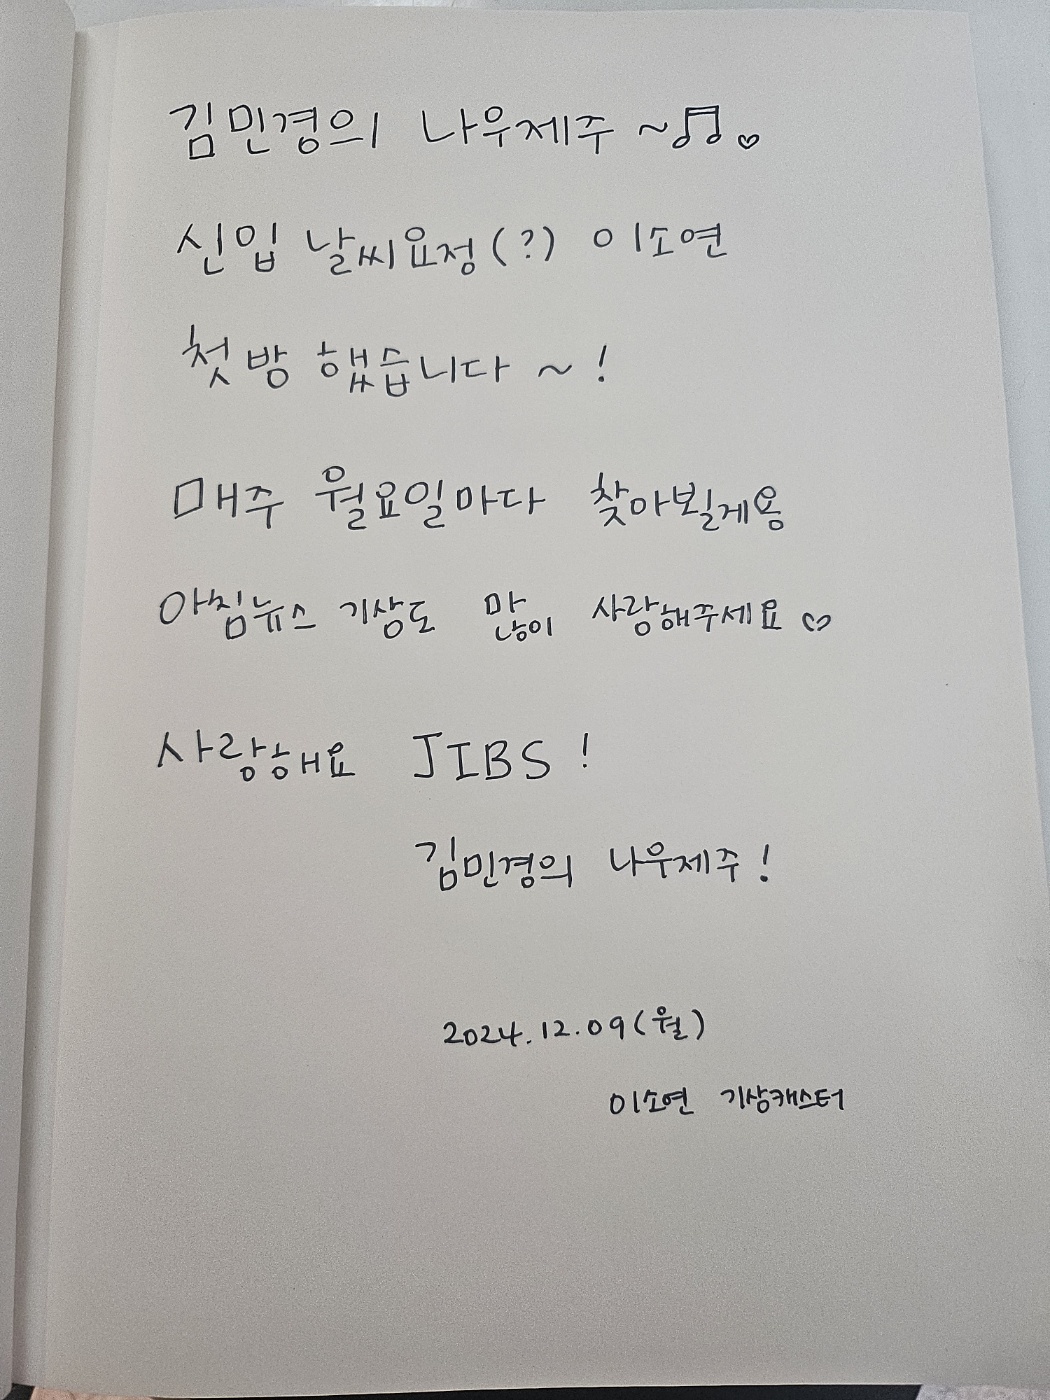 김민경의 나우제주 ~♫♡
신입 날씨요정(?) 이소연
첫방 했습니다 ~ !
매주 월요일마다 찾아뵐게용
아침뉴스 기상도 많이 사랑해주세요♡
사랑해요 JIBS !
김민경의 나우제주 !
2024.12.09(월)
이소연 기상캐스터